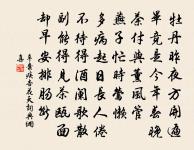 牡丹昨夜方開遍
畢竟是今年春晚
荼付與薰風管
燕子忙時鶯懶
多病起日長人倦
不待得酒闌歌散
副能得見茶甌面
却早安排腸斷
辛棄疾杏花天詞典網